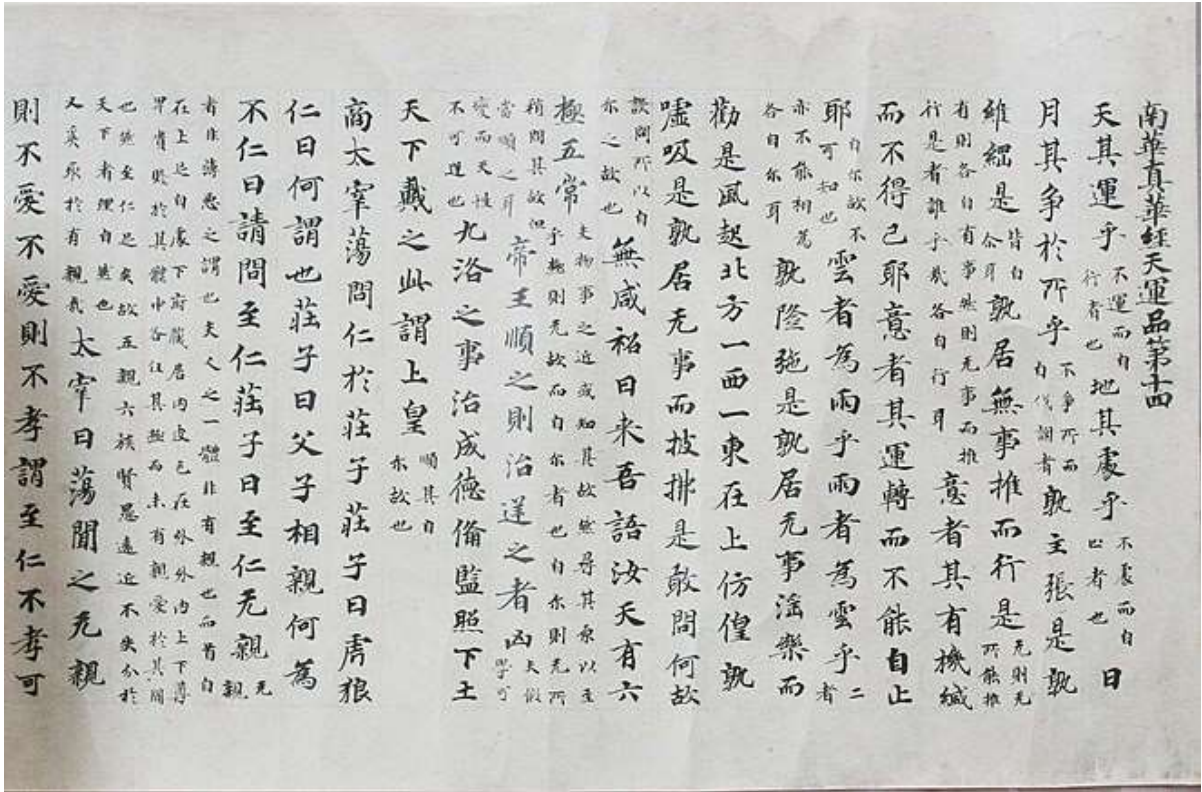 南華真華經天運品第十四
天其運乎不運而自行者也地其處乎不處而自止者也日
月其爭於所乎不爭所而自代謝者孰主張是孰
維綱是皆自尒耳孰居無事推而行是无則无所能推
有則各自有事然則无事而推行是者誰乎哉各自行耳意者其有機緘
而不得已耶意者其運轉而不能自止
耶自尒故不可知也雲者為雨乎雨者為雲乎二者
亦不能相為各自尒耳孰隆弛是孰居无事淫樂而
勸是風起北方一西一東在上仿偟孰
噓吸是孰居无事而披拂是敢問何故
設問所以自尒之故也無咸祒曰来吾語汝天有六
極五常夫物事之近或知其故然尋其原以至乎極則无故而自尒者也自尒則无所
稍問其故但當順之耳帝王順之則治逆之者凶夫假學可
變而天性不可逆也九洛之事治成德俻監照下土
天下戴之此謂上皇順其自尒故也
商太宰蕩問仁於莊子莊子曰虎狼
仁曰何謂也莊子曰父子相親何為
不仁曰請問至仁莊子曰至仁无親无親
者非薄惡之謂也夫人之一體非有親也而首自
在上足自處下府藏居內皮毛在外外內上下尊
卑貴賤於其體中各任其極而未有親愛於其間
也然至仁足矣故五親六族賢愚遠近不失分於
天下者理自然也又奚取於有親哉太宰曰蕩聞之无親
則不愛不愛則不孝謂至仁不孝可